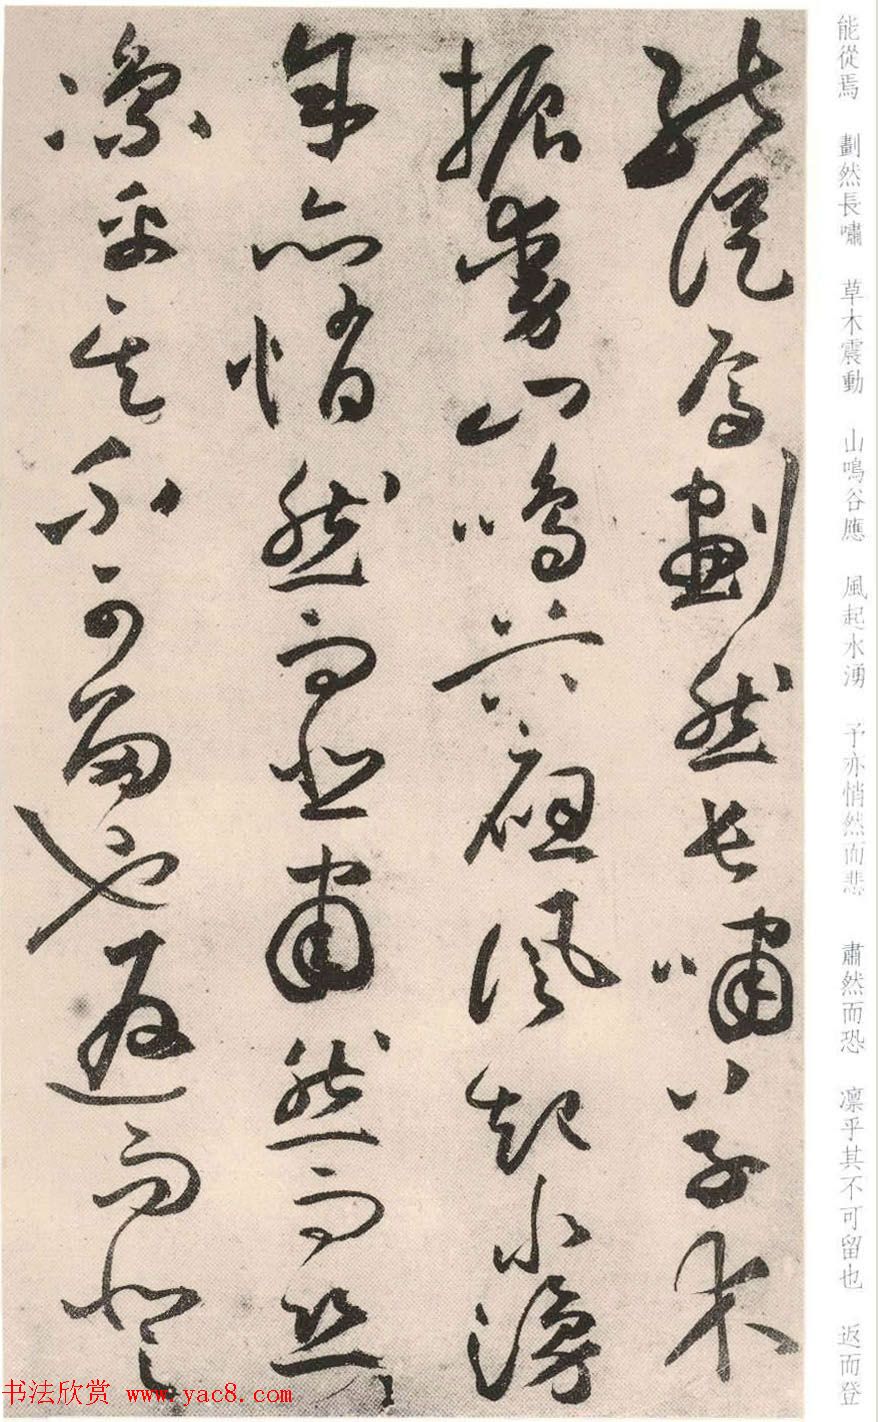 能從焉 劃然長嘯 草木震動 山鳴谷應 風起水湧 予亦悄然而悲 肅然而恐 凛乎其不可留也 返而登
能從焉劃然長嘯草木
振動山鳴谷應風起水湧
予亦悄然而悲肅然而恐
凛乎其不可留也返而登
书法欣赏 www.yac8.com